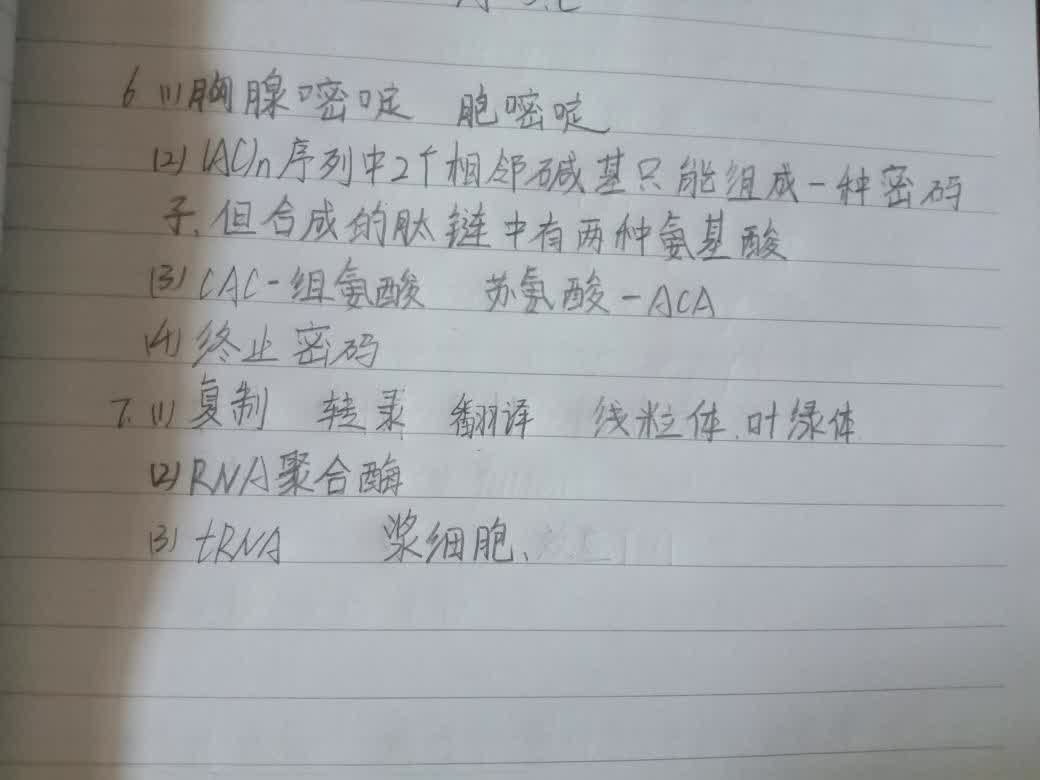 6 (1) 胸腺嘧啶 胞嘧啶
(2) (AC)n序列中2个相邻碱基只能组成一种密码
子,但合成的肽链中有两种氨基酸
(3) CAC-组氨酸 苏氨酸-ACA
(4) 终止密码
7. (1) 复制 转录 翻译 线粒体、叶绿体
(2) RNA聚合酶
(3) tRNA 浆细胞、